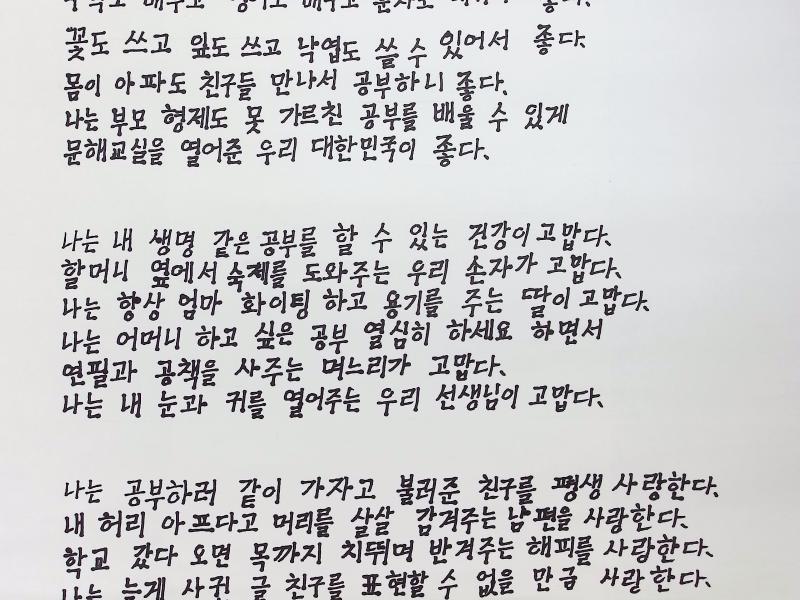 배우고 배우고 문자도 좋다.
꽃도 쓰고 잎도 쓰고 낙엽도 쓸 수 있어서 좋다.
몸이 아파도 친구들 만나서 공부하니 좋다.
나는 부모 형제도 못 가르친 공부를 배울 수 있게
문해교실을 열어준 우리 대한민국이 좋다.
나는 내 생명 같은 공부를 할 수 있는 건강이 고맙다.
할머니 옆에서 숙제를 도와주는 우리 손자가 고맙다.
나는 항상 엄마 화이팅 하고 용기를 주는 딸이 고맙다.
나는 어머니 하고 싶은 공부 열심히 하세요 하면서
연필과 공책을 사주는 며느리가 고맙다.
나는 내 눈과 귀를 열어주는 우리 선생님이 고맙다.
나는 공부하러 같이 가자고 불러준 친구를 평생 사랑한다.
내 허리 아프다고 머리를 살살 감겨주는 남편을 사랑한다.
학교 갔다 오면 목까지 치뛰며 반겨주는 해피를 사랑한다.
나는 늦게 사귄 글 친구를 표현할 수 없을 만큼 사랑한다.